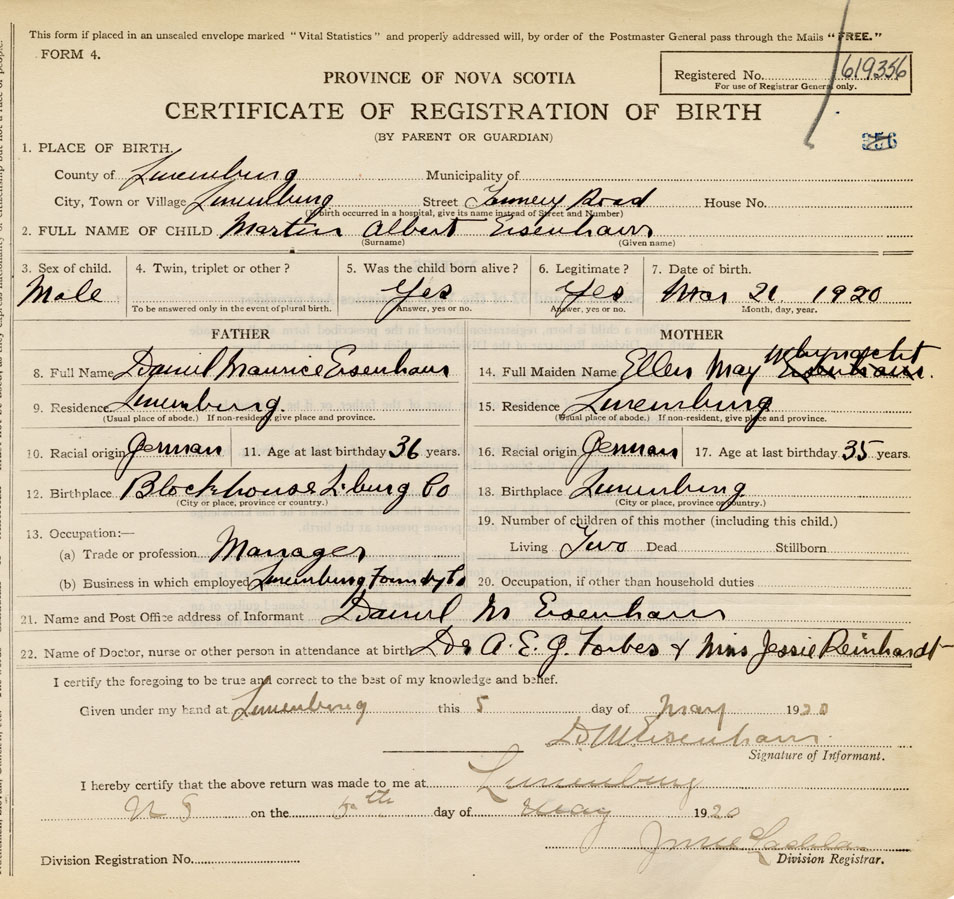 This form if placed in an unsealed envelope marked "Vital Statistics" and properly addressed will, by order of the Postmaster General pass through the Mails "FREE."
FORM 4.
Registered No. 619356
For use of Registrar General only.
PROVINCE OF NOVA SCOTIA
CERTIFICATE OF REGISTRATION OF BIRTH
(BY PARENT OR GUARDIAN)
356
1. PLACE OF BIRTH.
County of Lunenburg Municipality of
City, Town or Village Lunenburg Street Tannery Road House No.
(If birth occurred in a hospital, give its name instead of Street and Number)
2. FULL NAME OF CHILD Martin Albert Eisenhaur
(Surname) (Given name)
3. Sex of child. 4. Twin, triplet or other? 5. Was the child born alive? 6. Legitimate? 7. Date of birth.
Male Yes Yes Mar 21 1920
To be answered only in the event of plural birth. Answer, yes or no. Answer, yes or no. Month, day, year.
FATHER MOTHER
8. Full Name Daniel Maurice Eisenhaur 14. Full Maiden Name Ellen May Eisenhaur
9. Residence Lunenburg. 15. Residence Lunenburg
(Usual place of abode.) If non-resident, give place and province. (Usual place of abode.) If non-resident, give place and province.
10. Racial origin German 11. Age at last birthday 36 years. 16. Racial origin German 17. Age at last birthday 35 years.
12. Birthplace Blockhouse L.burg Co 18. Birthplace Lunenburg
(City or place, province or country.) (City or place, province or country.)
13. Occupation:— 19. Number of children of this mother (including this child.)
(a) Trade or profession Manager Living Two Dead Stillborn
(b) Business in which employed Lunenburg Foundry Co 20. Occupation, if other than household duties
21. Name and Post Office address of Informant Daniel M Eisenhaur
22. Name of Doctor, nurse or other person in attendance at birth Dr A. E. G. Forbes & Miss Jessie Reinhardt
I certify the foregoing to be true and correct to the best of my knowledge and belief.
Given under my hand at Lunenburg this 5 day of May 1920
D M Eisenhaur
Signature of Informant.
I hereby certify that the above return was made to me at Lunenburg
N S on the 5th day of May 1920
Division Registration No. Division Registrar.